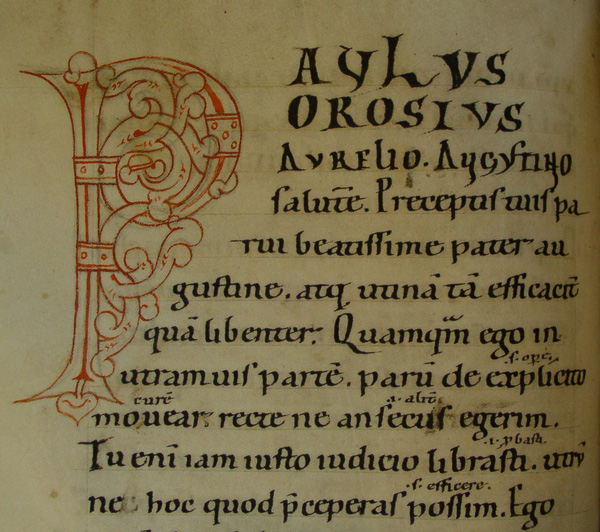 PAULUS
OROSIUS
AURELIO. AUGUSTINO
salutē. Preceptis tuis pa
rui beatissime pater au
gustine. atq; utinā tā efficacit̄
quā libenter; Quamqm̄ ego in
.s. ope.
utramuis partē. parū de explicito
curē .a. alit̄.
mouear. recte ne an secus egerim.
Tu enī iam iusto iudicio librasti. utrū
.s. efficere.
ne hoc quod p̄ceperas possim. Ego